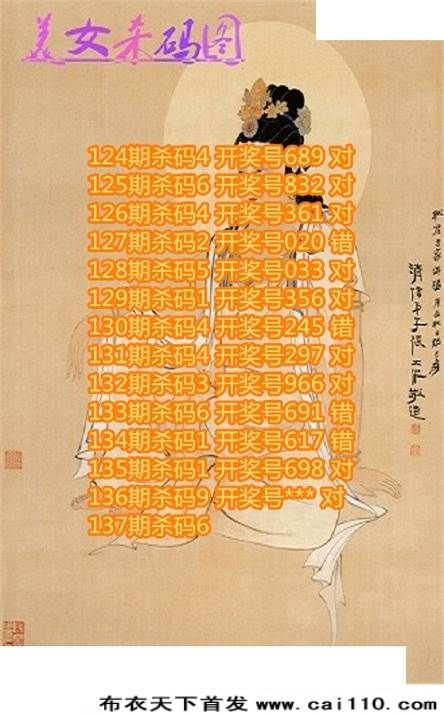 美女杀码图
124期杀码4 开奖号689 对
125期杀码6 开奖号832 对
126期杀码4 开奖号361 对
127期杀码2 开奖号020 错
128期杀码5 开奖号033 对
129期杀码1 开奖号356 对
130期杀码4 开奖号245 错
131期杀码4 开奖号297 对
132期杀码3 开奖号966 对
133期杀码6 开奖号691 错
134期杀码1 开奖号617 错
135期杀码1 开奖号698 对
136期杀码9 开奖号*** 对
137期杀码6
布衣天下首发 www.cai110.com